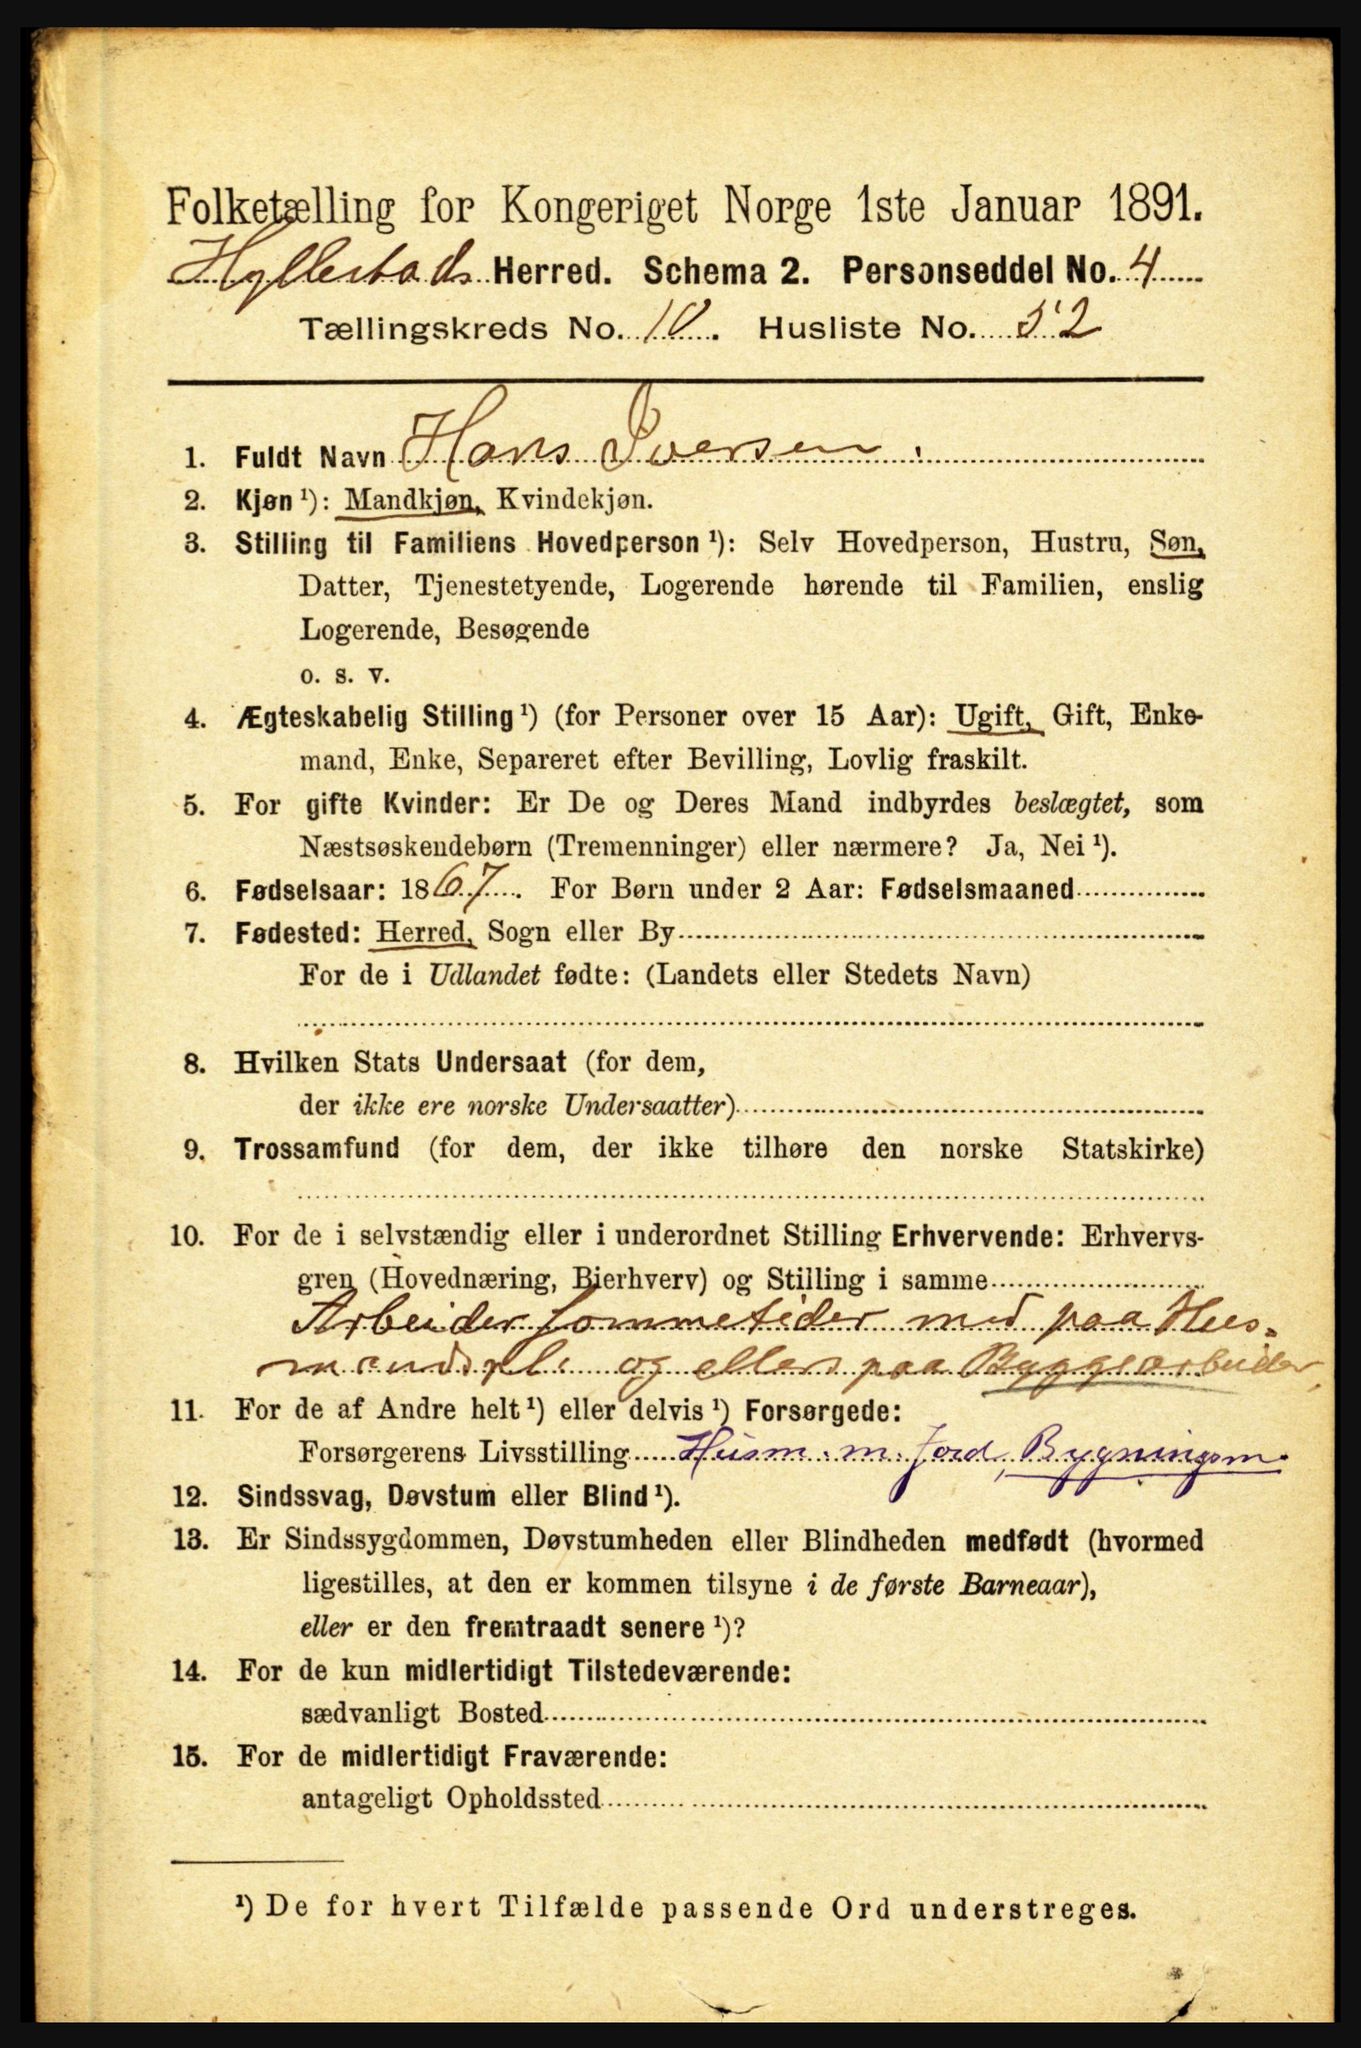 Folketælling for Kongeriget Norge 1ste Januar 1891.
Hyllestads Herred. Schema 2. Personseddel No. 4
Tællingskreds No. 10. Husliste No. 52
1. Fuldt Navn Hans Iversen.
2. Kjøn ¹): Mandkjøn, Kvindekjøn.
3. Stilling til Familiens Hovedperson ¹): Selv Hovedperson, Hustru, Søn,
Datter, Tjenestetyende, Logerende hørende til Familien, enslig
Logerende, Besøgende
o. s. v.
4. Ægteskabelig Stilling ¹) (for Personer over 15 Aar): Ugift, Gift, Enke-
mand, Enke, Separeret efter Bevilling, Lovlig fraskilt.
5. For gifte Kvinder: Er De og Deres Mand indbyrdes beslægtet, som
Næstsøskendebørn (Tremenninger) eller nærmere? Ja, Nei ¹).
6. Fødselsaar: 1867. For Børn under 2 Aar: Fødselsmaaned
7. Fødested: Herred, Sogn eller By
For de i Udlandet fødte: (Landets eller Stedets Navn)
8. Hvilken Stats Undersaat (for dem,
der ikke ere norske Undersaatter)
9. Trossamfund (for dem, der ikke tilhøre den norske Statskirke)
10. For de i selvstændig eller i underordnet Stilling Erhvervende: Erhvervs-
gren (Hovednæring, Bierhverv) og Stilling i samme
Arbeider sommetider med paa Hus-
mandspl. og ellers paa Byggearbeider,
11. For de af Andre helt ¹) eller delvis ¹) Forsørgede:
Forsørgerens Livsstilling Husm. m. jord, Bygningsm.
12. Sindssvag, Døvstum eller Blind ¹).
13. Er Sindssygdommen, Døvstumheden eller Blindheden medfødt (hvormed
ligestilles, at den er kommen tilsyne i de første Barneaar),
eller er den fremtraadt senere ¹)?
14. For de kun midlertidigt Tilstedeværende:
sædvanligt Bosted
15. For de midlertidigt Fraværende:
antageligt Opholdssted
¹) De for hvert Tilfælde passende Ord understreges.